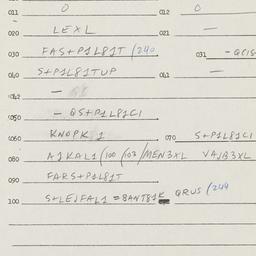 011 0 012 0
020 LEXL 021 —
030 FAS+P1L81T (240 031 - QCIS
040 S+P1L81TUP 041 —
042 —
050 - QS+P1L81CI
060 KNOPK 1 070 S+P1L81CI
080 A1KAL1 (100 (103 /MEN3XL VAJB3XL
090 FARS+P1L81T
100 S+LEJFAL1 = 8ANT81K QRUS (244